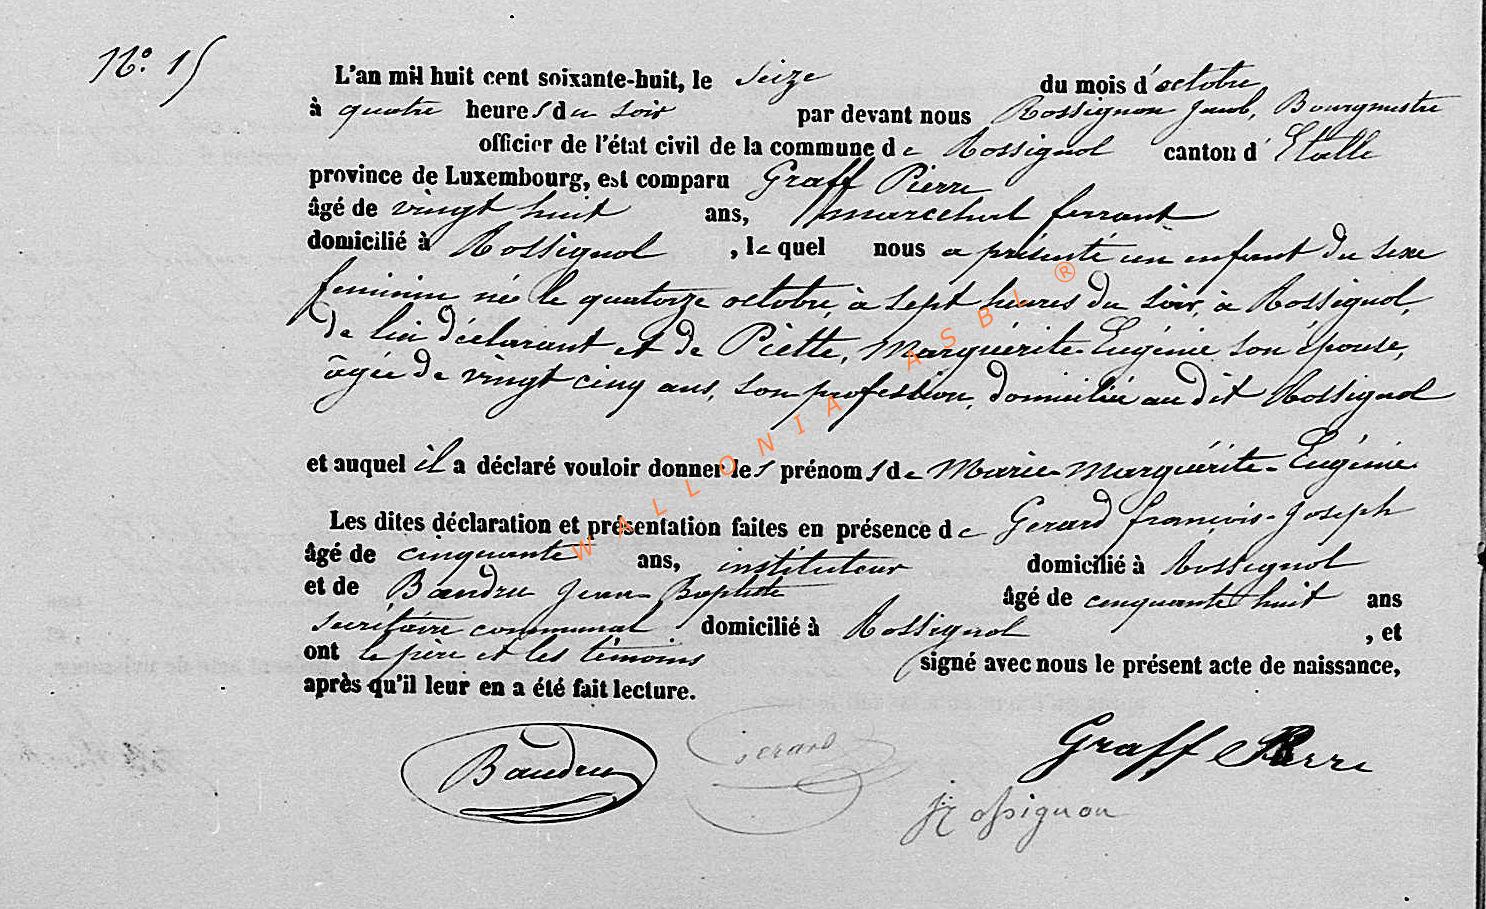 N.º 15
L'an mil huit cent soixante-huit, le seize du mois d'octobre
à quatre heures du soir par devant nous Rossignon Jacob, Bourgmestre
officier de l'état civil de la commune de Rossignol canton d'Etalle
province de Luxembourg, est comparu Graff Pierre
âgé de vingt huit ans, marechal ferrant
domicilié à Rossignol, lequel nous a présenté un enfant du sexe
feminin née le quatorze octobre, à sept heures du soir, à Rossignol,
de lui déclarant et de Piette, Marguérite-Eugénie son épouse,
âgée de vingt cinq ans, son profession, domiciliée au dit Rossignol
et auquel il a déclaré vouloir donner les prénoms de Marie-Marguérite-Eugénie
Les dites déclaration et présentation faites en présence de Gerard françois-Joseph
âgé de cinquante ans, instituteur domicilié à Rossignol
et de Baudru Jean-Baptiste âgé de cinquante huit ans
secrétaire communal domicilié à Rossignol, et
ont le père et les témoins signé avec nous le présent acte de naissance,
après qu'il leur en a été fait lecture.
Baudru Gerard Graff Pierre
Rossignon
WALLONIA ASBL ®